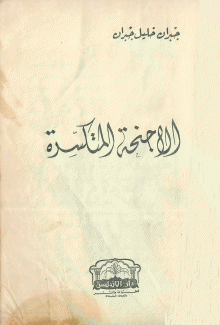 جبران خليل جبران
الأجنحة المتكسّرة
دار الأندلس